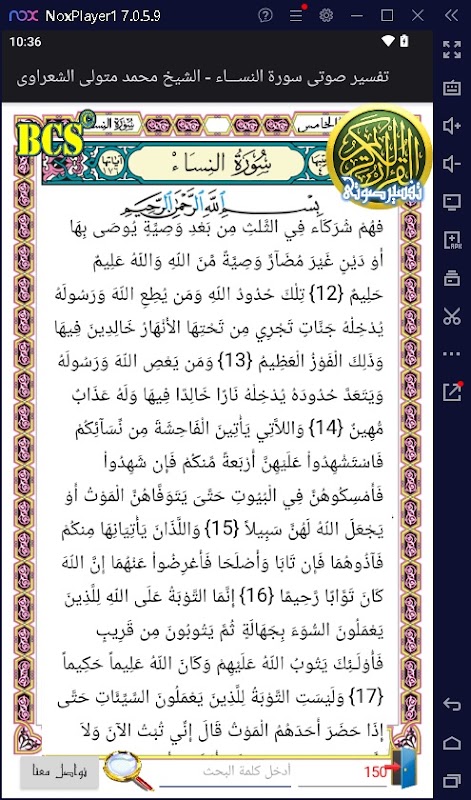 NoxPlayer1 7.0.5.9
10:36
تفسير صوتى سورة النســـاء - الشيخ محمد متولى الشعراوى
BCS
سُورَةُ النِسَاءْ
القرآن
تفسير صوتى
بِسْمِ اللَّهِ الرَّحْمَٰنِ الرَّحِيمِ
فَهُمْ شُرَكَاء فِي الثُّلُثِ مِن بَعْدِ وَصِيَّةٍ يُوصَى بِهَا
أَوْ دَيْنٍ غَيْرَ مُضَآرٍّ وَصِيَّةً مِّنَ اللهِ وَاللهُ عَلِيمٌ
حَلِيمٌ {12} تِلْكَ حُدُودُ اللهِ وَمَن يُطِعِ اللهَ وَرَسُولَهُ
يُدْخِلْهُ جَنَّاتٍ تَجْرِي مِن تَحْتِهَا الأَنْهَارُ خَالِدِينَ فِيهَا
وَذَلِكَ الْفَوْزُ الْعَظِيمُ {13} وَمَن يَعْصِ اللهَ وَرَسُولَهُ
وَيَتَعَدَّ حُدُودَهُ يُدْخِلْهُ نَارًا خَالِدًا فِيهَا وَلَهُ عَذَابٌ
مُّهِينٌ {14} وَاللاَّتِي يَأْتِينَ الْفَاحِشَةَ مِن نِّسَآئِكُمْ
فَاسْتَشْهِدُواْ عَلَيْهِنَّ أَرْبَعَةً مِّنكُمْ فَإِن شَهِدُواْ
فَأَمْسِكُوهُنَّ فِي الْبُيُوتِ حَتَّىَ يَتَوَفَّاهُنَّ الْمَوْتُ أَوْ
يَجْعَلَ اللهُ لَهُنَّ سَبِيلاً {15} وَاللَّذَانَ يَأْتِيَانِهَا مِنكُمْ
فَآذُوهُمَا فَإِن تَابَا وَأَصْلَحَا فَأَعْرِضُواْ عَنْهُمَا إِنَّ اللهَ
كَانَ تَوَّابًا رَّحِيمًا {16} إِنَّمَا التَّوْبَةُ عَلَى اللهِ لِلَّذِينَ
يَعْمَلُونَ السُّوَءَ بِجَهَالَةٍ ثُمَّ يَتُوبُونَ مِن قَرِيبٍ
فَأُوْلَـئِكَ يَتُوبُ اللهُ عَلَيْهِمْ وَكَانَ اللهُ عَلِيماً حَكِيماً
{17} وَلَيْسَتِ التَّوْبَةُ لِلَّذِينَ يَعْمَلُونَ السَّيِّئَاتِ حَتَّى
إِذَا حَضَرَ أَحَدَهُمُ الْمَوْتُ قَالَ إِنِّي تُبْتُ الآنَ وَلاَ
تواصل معنا
أدخل كلمة البحث
150